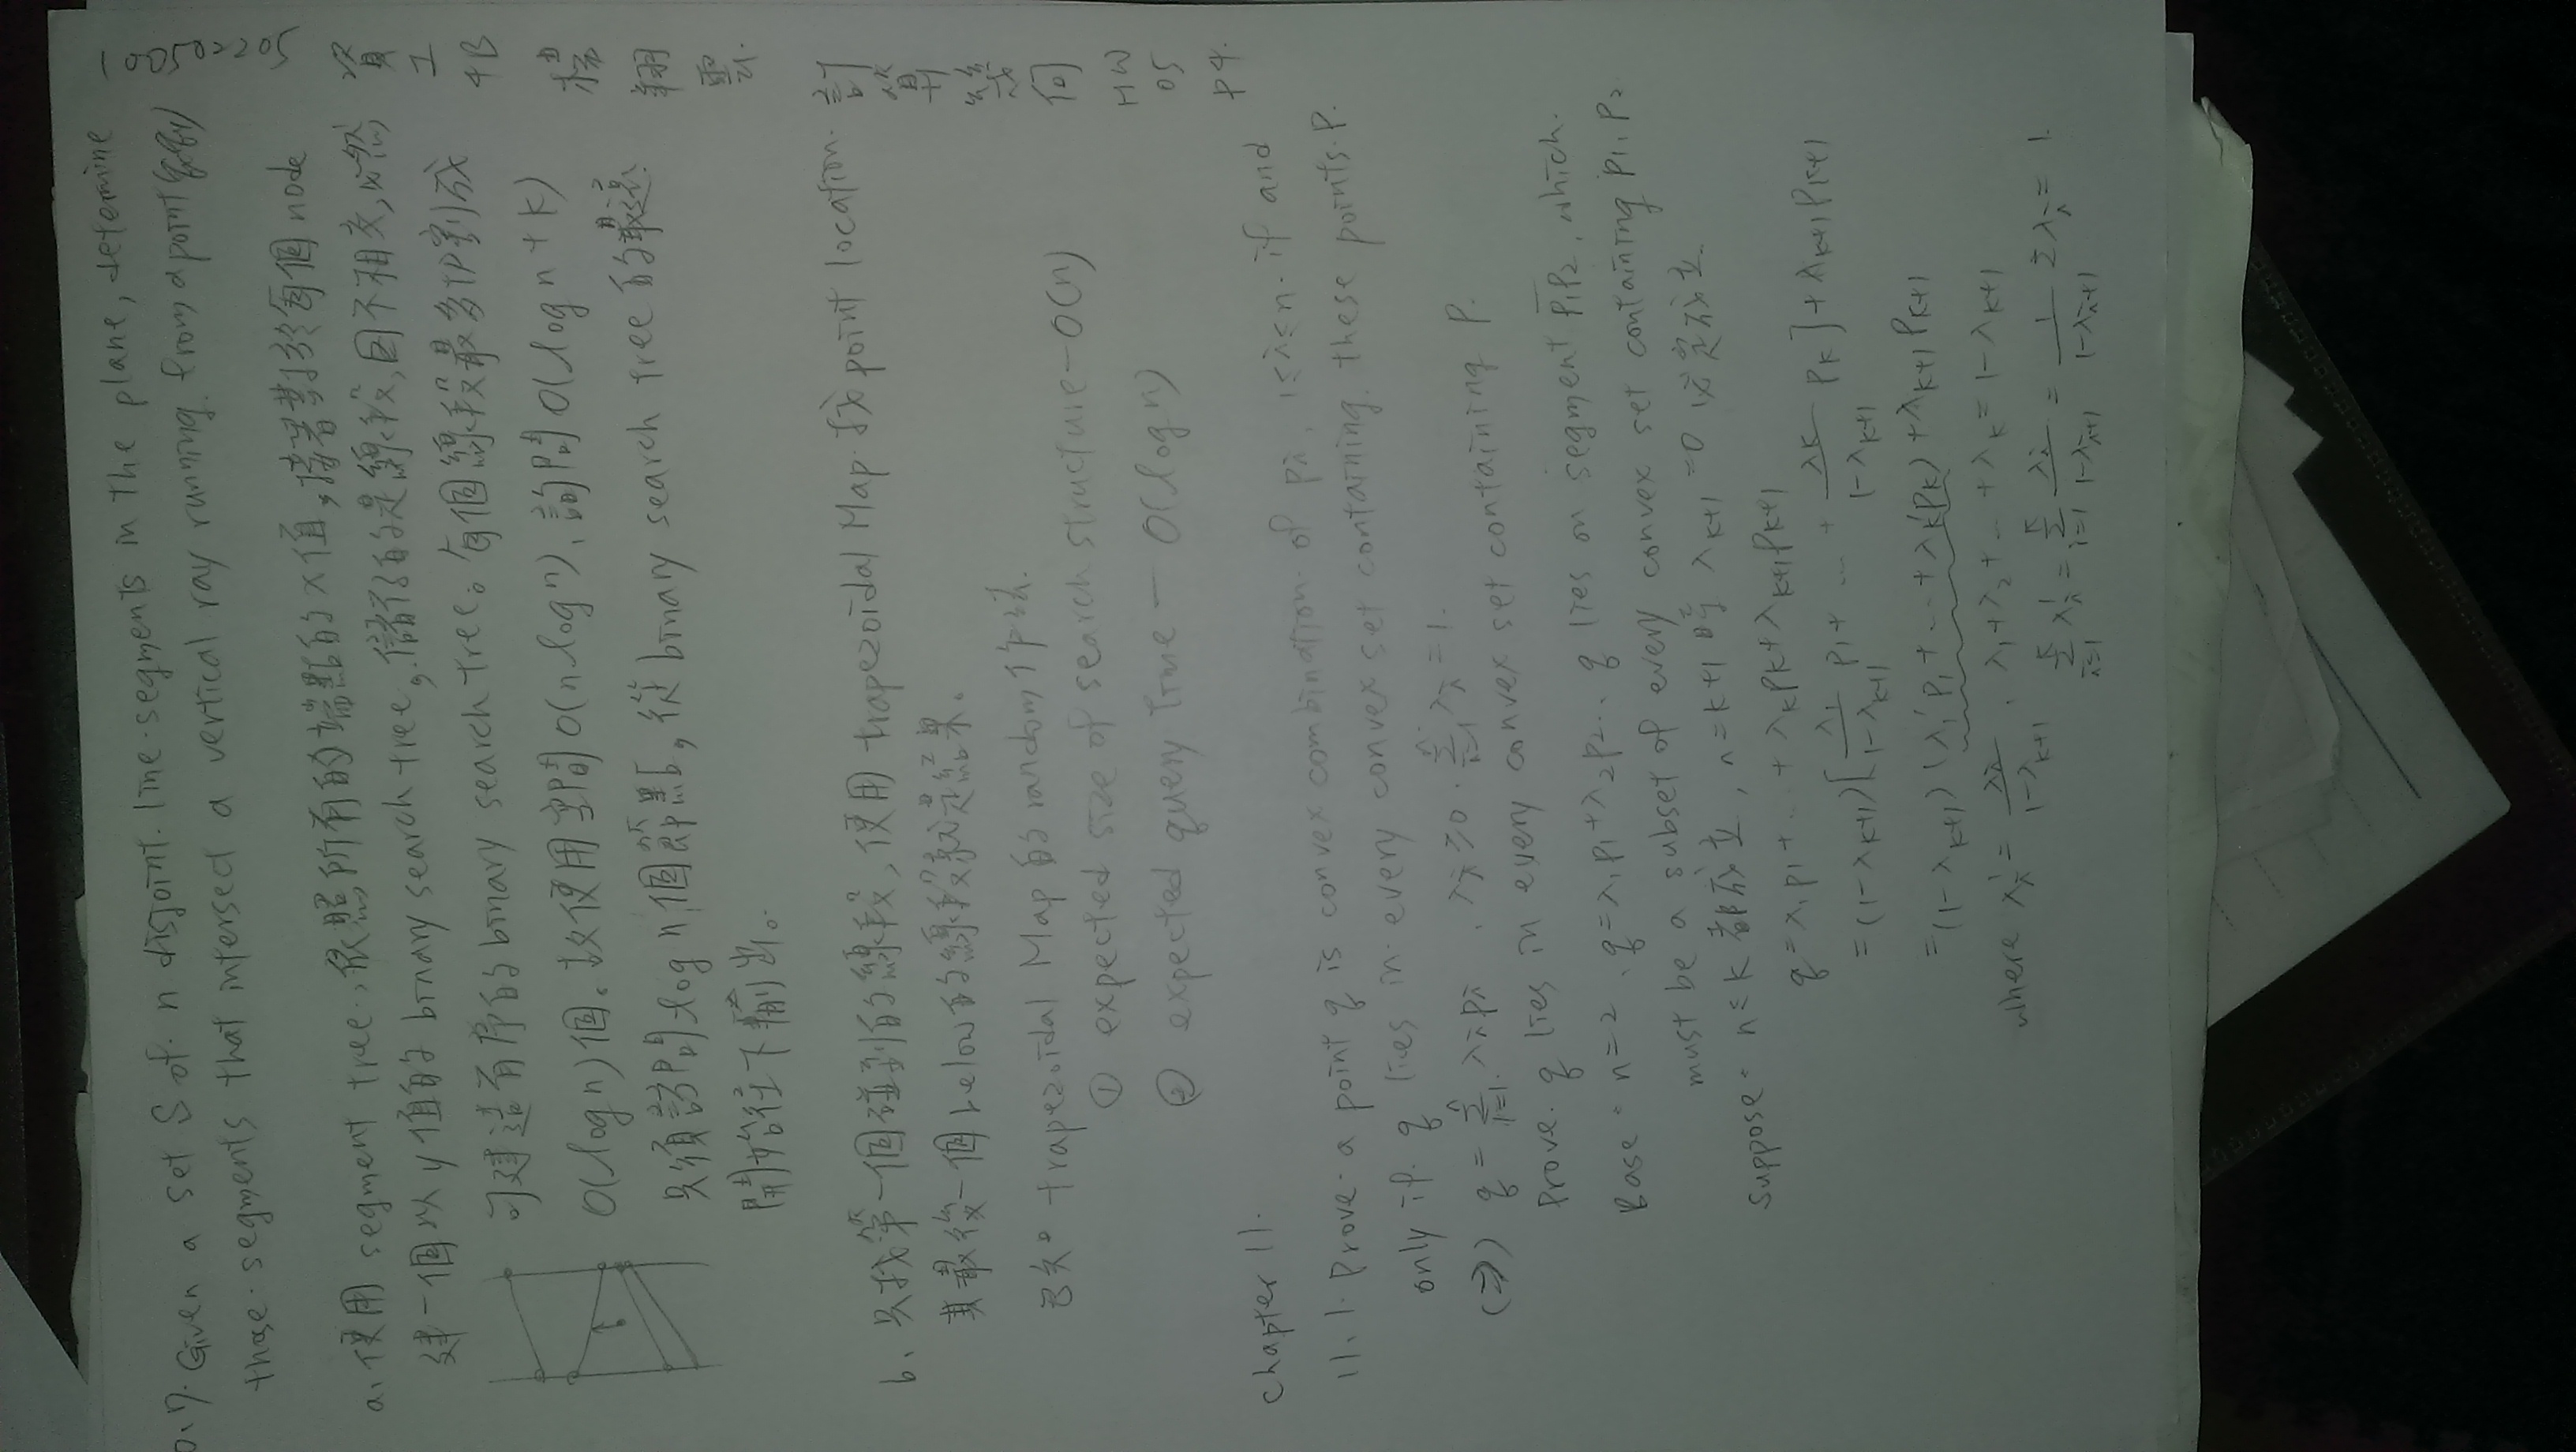 資工4B 楊翔雲. 計算幾何 HW05 P4.
0.17. Given a set S of n disjoint line segments in the plane, determine
those segments that intersed a vertical ray running from a point
a. 使用 segment tree, 依照所有的端點的 x 值, 接著對於每個 node
建一個以 y 值的 binary search tree, 儲存的是線段, 因不相交, 必然
可建造有序的 binary search tree。每個線段最多切割成
O(log n) 個。故使用空間 O(n log n)、詢問 O(log n + k)
只須詢問 log n 個節點, 從 binary search tree 的最
開始往下輸出。
b. 只找第一個碰到的線段, 使用 trapezoidal Map 找 point location.
其最後一個 below 的線段就是結果。
已知。trapezoidal Map 的 random 作法.
① expected size of search structure - O(n)
② expected query time - O(log n)
Chapter 11.
11.1. Prove. a point q is convex combination of pi, 1≤i≤n. if and
only if. q lies in every convex set containing these points. P.
(⇒) q = Σ i=1 n λi pi , λi ≥ 0 . Σ i=1 n λi = 1.
Prove. q lies in every convex set containing P.
Base. n=2. q=λ1p1+λ2p2.. q lies on segment p1p2, which.
must be a subset of every convex set containing p1, p2
Suppose. n≤k 都成立, n=k+1 時 λk+1=0 必定成立.
q=λ1p1+...+λkpk+λk+1pk+1
=(1-λk+1)[λ1/(1-λk+1) p1+ ... + λk/(1-λk+1) pk]+λk+1pk+1
=(1-λk+1)(λ1'p1+...+λk'pk)+λk+1pk+1
where λi'=λi/(1-λk+1) . λ1+λ2+...+λk=1-λk+1
Σ i=1 k λi' = Σ i=1 k λi/(1-λi+1) = 1/(1-λi+1) Σλi = 1.